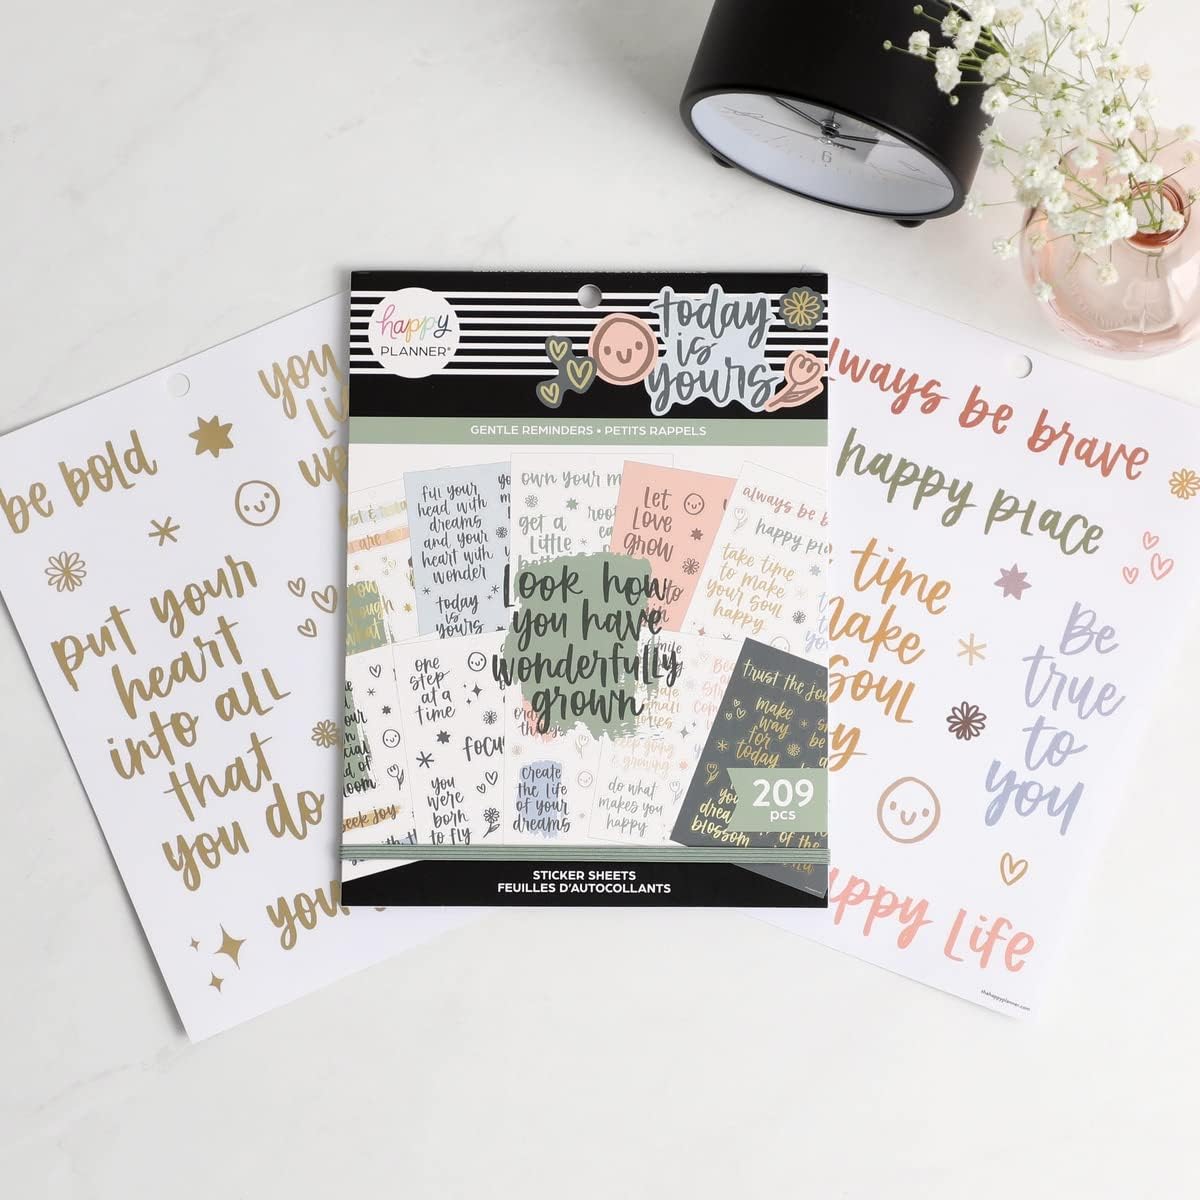 happy
PLANNER®
today
is
yours
GENTLE REMINDERS • PETITS RAPPELS
fill your
head with
dreams
and your
heart with
wonder
today
is
yours
own your
get a
little
Let
Love
grow
always be
happy
take time
to make
your soul
happy
Look how
you have
wonderfully
grown
one
step
at a
time
you
were
born
to fly
seek joy
create
the life
of your
dreams
keep going
& growing
do what
makes you
happy
trust the
make
way for
today
blossom
209
pcs
STICKER SHEETS
FEUILLES D'AUTOCOLLANTS
be bold
put your
heart
into all
that
you do
you
up
always be brave
happy place
time
make
soul
Be
true
to
you
happy Life
thehappyplanner.com
6